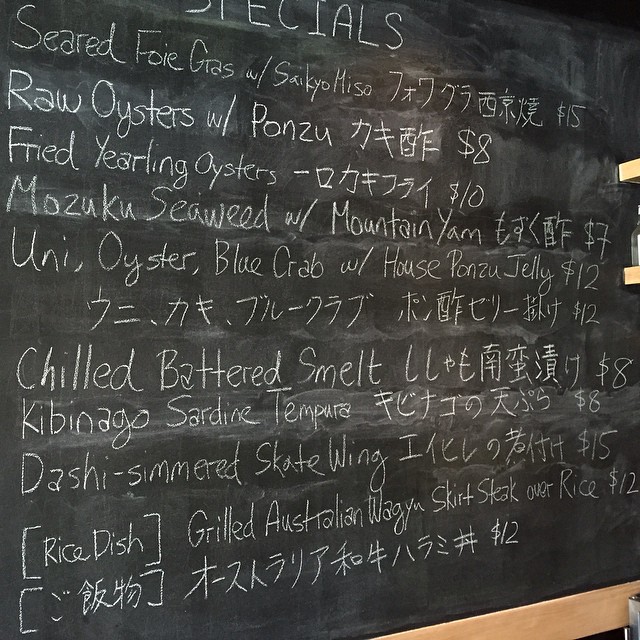 SPECIALS
Seared Foie Gras w/ Saikyo Miso フォワグラ西京焼 $15
Raw Oysters w/ Ponzu カキ酢 $8
Fried Yearling Oysters 一口カキフライ $10
Mozuku Seaweed w/ Mountain Yam もずく酢 $7
Uni, Oyster, Blue Crab w/ House Ponzu Jelly $12
ウニ、カキ、ブルークラブ ポン酢ゼリー掛け $12
Chilled Battered Smelt ししゃも南蛮漬け $8
Kibinago Sardine Tempura キビナゴの天ぷら $8
Dashi-simmered Skate Wing エイヒレの煮付け $15
[Rice Dish] Grilled Australian Wagyu Skirt Steak over Rice $12
[ご飯物] オーストラリア和牛ハラミ丼 $12